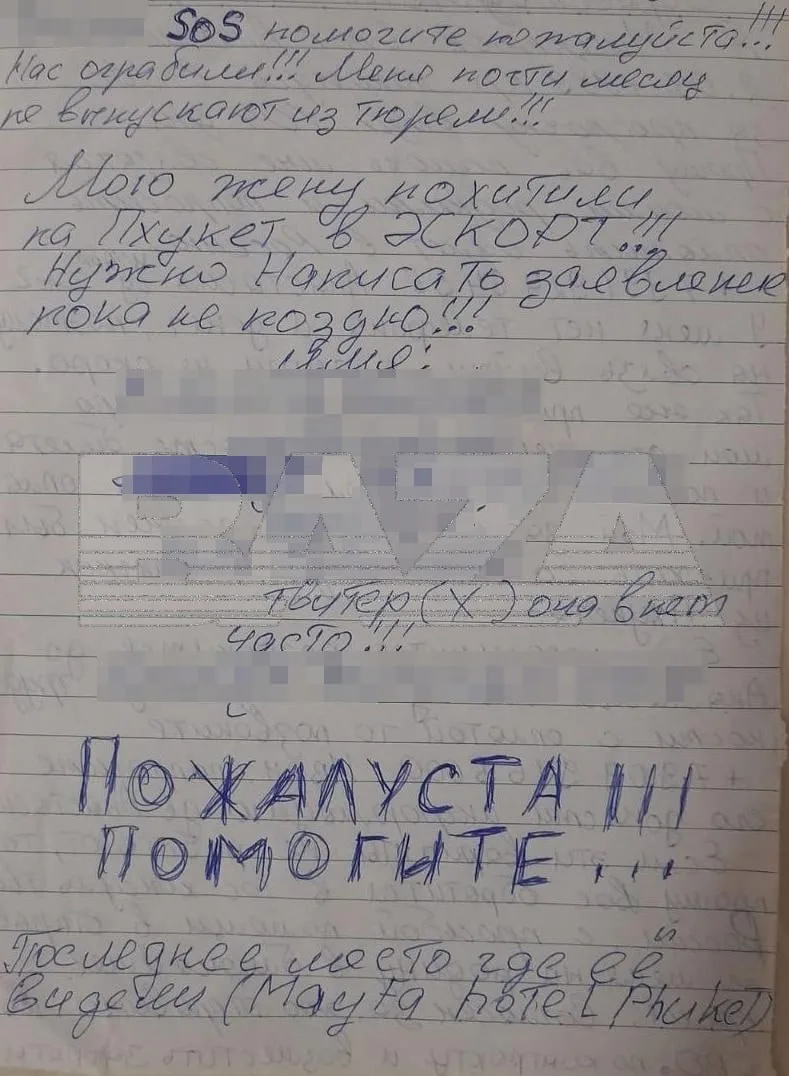 SOS помогите пожалуйста!!!
Нас ограбили!!! Меня почти месяц
не выпускают из тюрмы!!!
Мою жену похитили
на Пхукет в ЭСКОРТ!!!
Нужно Написать заявление
пока не поздно!!!
имя:
BAZA
твитер (X) она внем
часто!!!
ПОЖАЛУСТА!!!
ПОМОГИТЕ...
Последнее место где её
видели (Mayfa hotel Phuket)